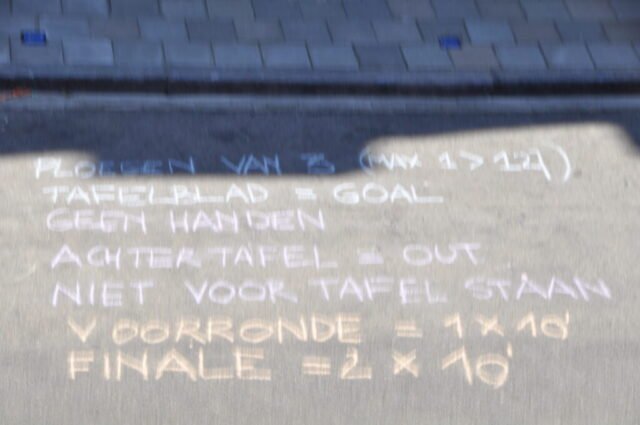 PLOEGEN VAN 3 (MAX 1 > 12)
TAFELBLAD = GOAL
GEEN HANDEN
ACHTER TAFEL = OUT
NIET VOOR TAFEL STAAN
VOORRONDE = 1 X 10'
FINALE = 2 X 10'